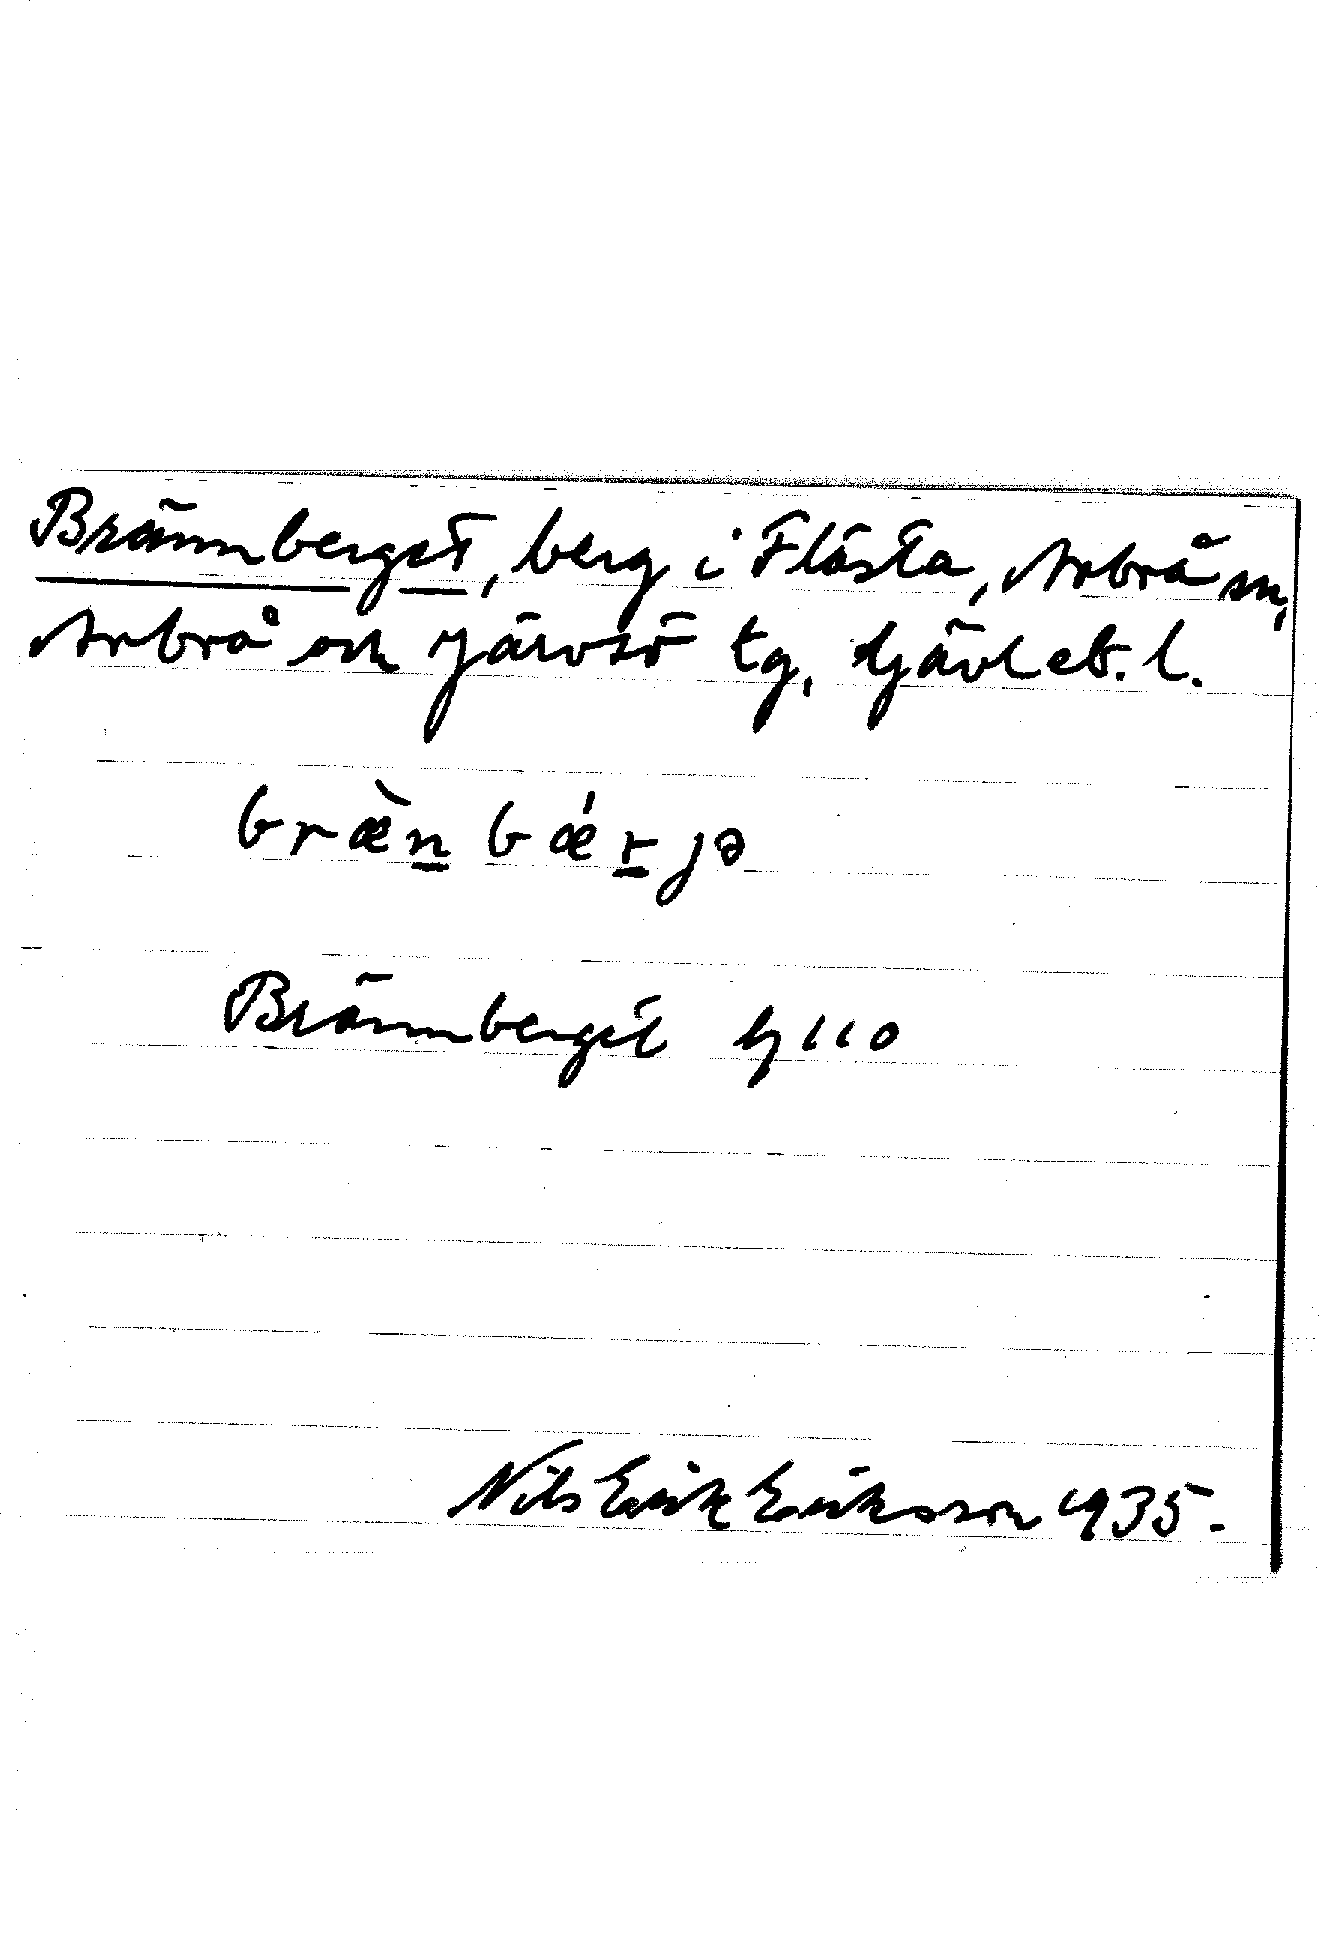 Brännberget, berg i Flästa, Arbrå sn,
Arbrå och Järvsö tg, Gävleb. l.
bræ̀n̲ bǽr̲jə
Brännberget G 110
Nils Erik Eriksson 1935.